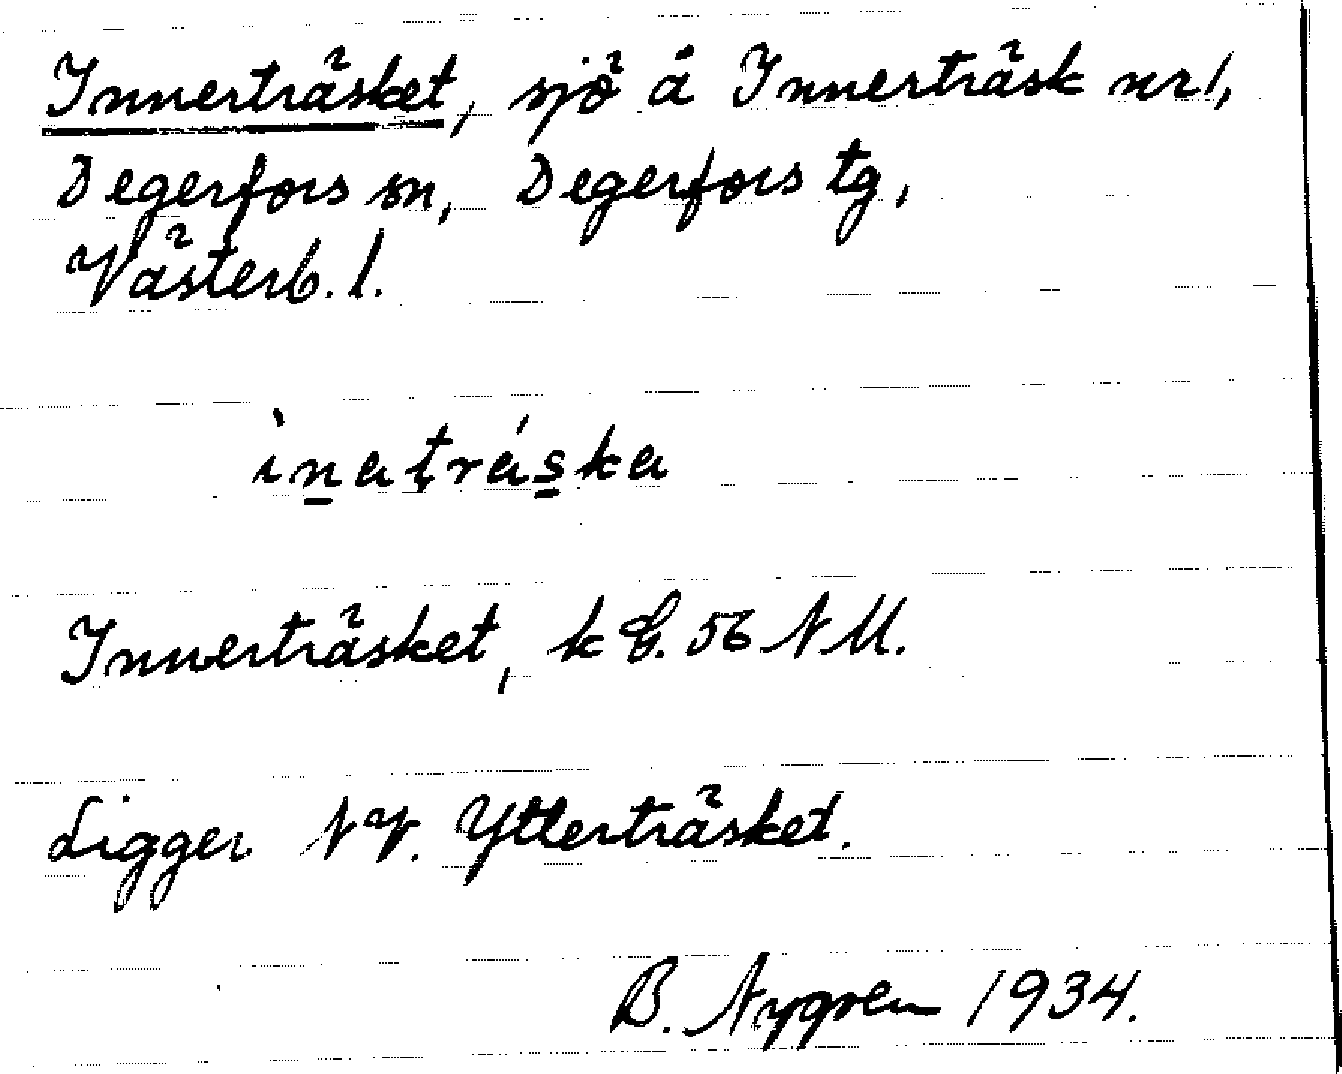 Innerträsket, sjö å Innerträsk nr 1,
Degerfors sn, Degerfors tg,
Västerb. l.
ìn̲atrás̲ka
Innerträsket, k G. 56 NM.
Ligger NV. Ytterträsket.
B. Nygren 1934.